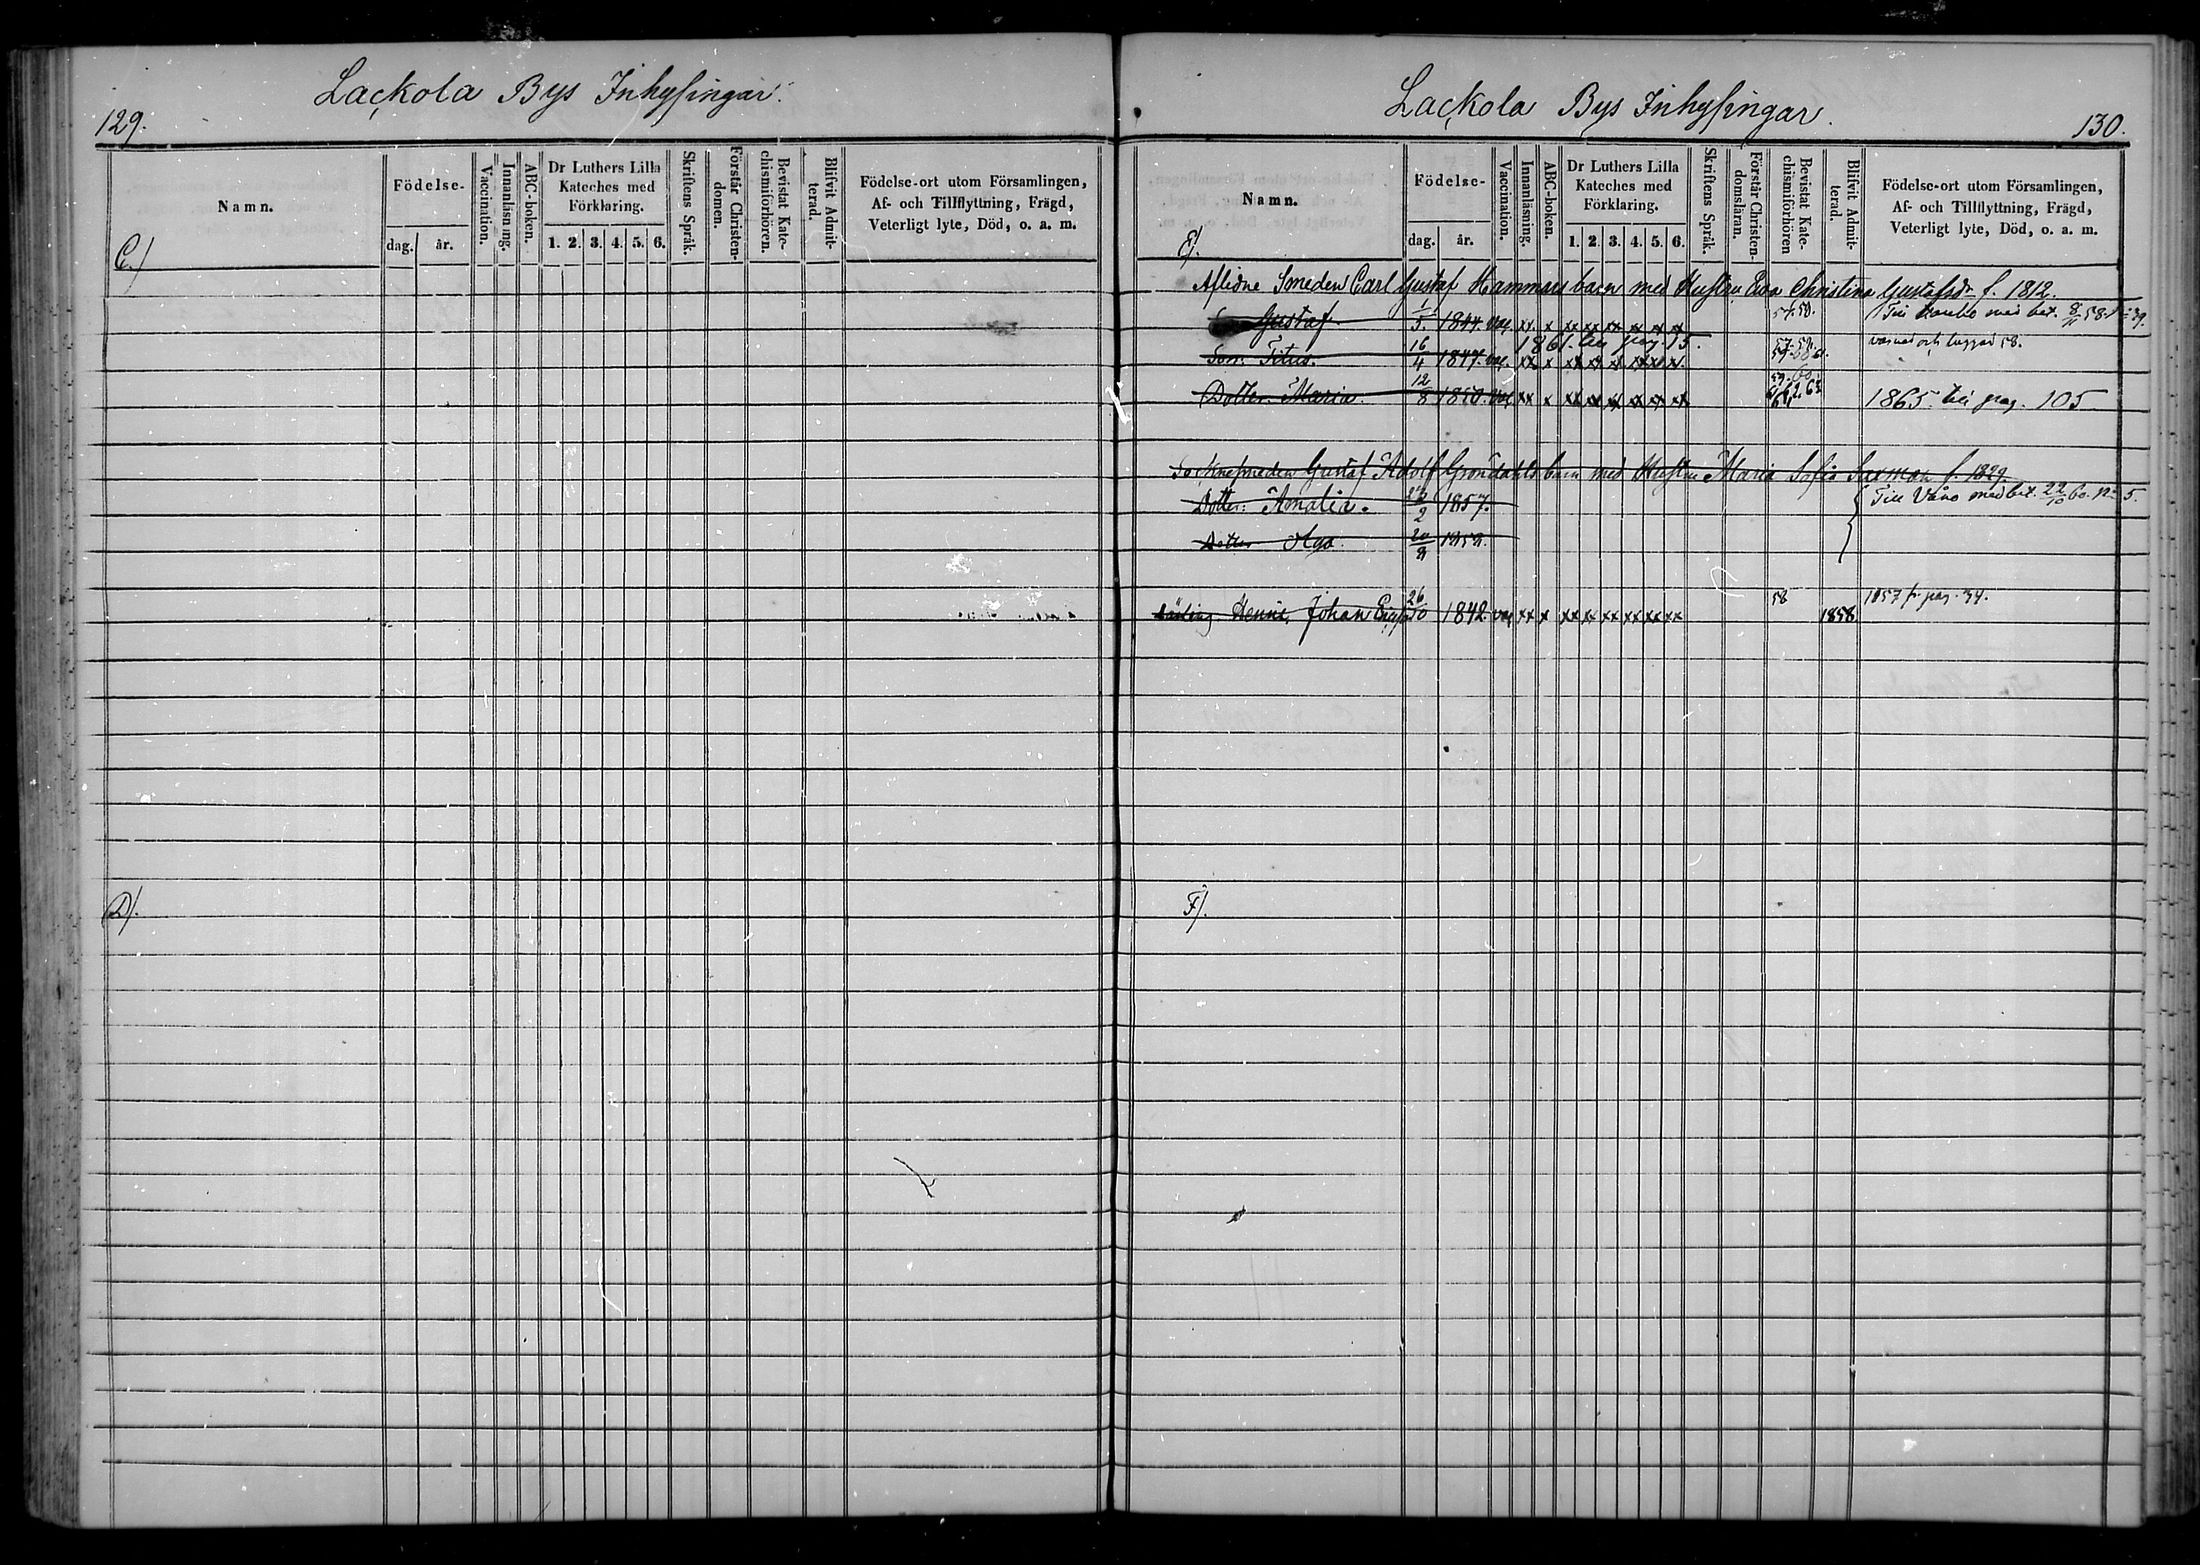 Lackola Bys Inhysingar.
129.
Namn.
Födelse-
dag. år.
Vaccination.
Innanläsning.
ABC-boken.
Dr Luthers Lilla
Kateches med
Förklaring.
1. 2. 3. 4. 5. 6.
Skriftens Språk.
Förstår Christen-
domen.
Bevistat Kate-
chismiförhören.
Blifvit Admit-
terad.
Födelse-ort utom Församlingen,
Af- och Tillflyttning, Frägd,
Veterligt lyte, Död, o. a. m.
C.)
D).
Lackola Bys Inhysingar.
130.
Namn.
Födelse-
dag. år.
Vaccination.
Innanläsning.
ABC-boken.
Dr Luthers Lilla
Kateches med
Förklaring.
1. 2. 3. 4. 5. 6.
Skriftens Språk.
Förstår Christen-
domsläran.
Bevistat Kate-
chismiförhören
Blifvit Admit-
terad.
Födelse-ort utom Församlingen,
Af- och Tillflyttning, Frägd,
Veterligt lyte, Död, o. a. m.
E).
Aflidne Smeden Carl Gustaf Hammars barn med Hustru Eva Christina Gustafsdr f. 1812.
Gustaf 1/5. 1844. vac. xx x xx xx xx xx xx xx 57. 58. Till med bet. 8/11 58. No 39.
1861. till pag. 15.
Son Titus. 16/4 1847. vac. xx x xx xx xx xx xx xx 57. 58.
Dotter Maria. 12/8 1850. vac xx x xx xx xx xx xx xx 59. 60. 1865. till pag. 105
Socknesmeden Gustaf Adolf Gröndahls barn med Hustru Maria Sofia f. 1829.
Dotter: Amalia. 1857. Till Vånå med bet. 22/10 60. No 5.
Dotter Olga. 1859.
Henric Johan 26/10 1842. vac xx x xx xx xx xx xx xx 58 1858 1857 fr. pag. 34.
F).